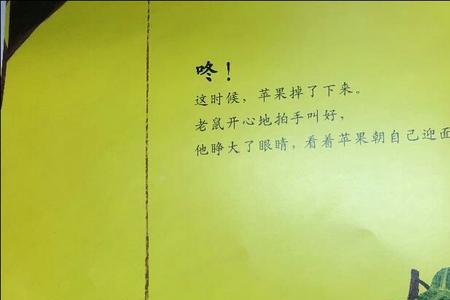 咚！
这时候，苹果掉了下来。
老鼠开心地拍手叫好，
他睁大了眼睛，看着苹果朝自己迎面